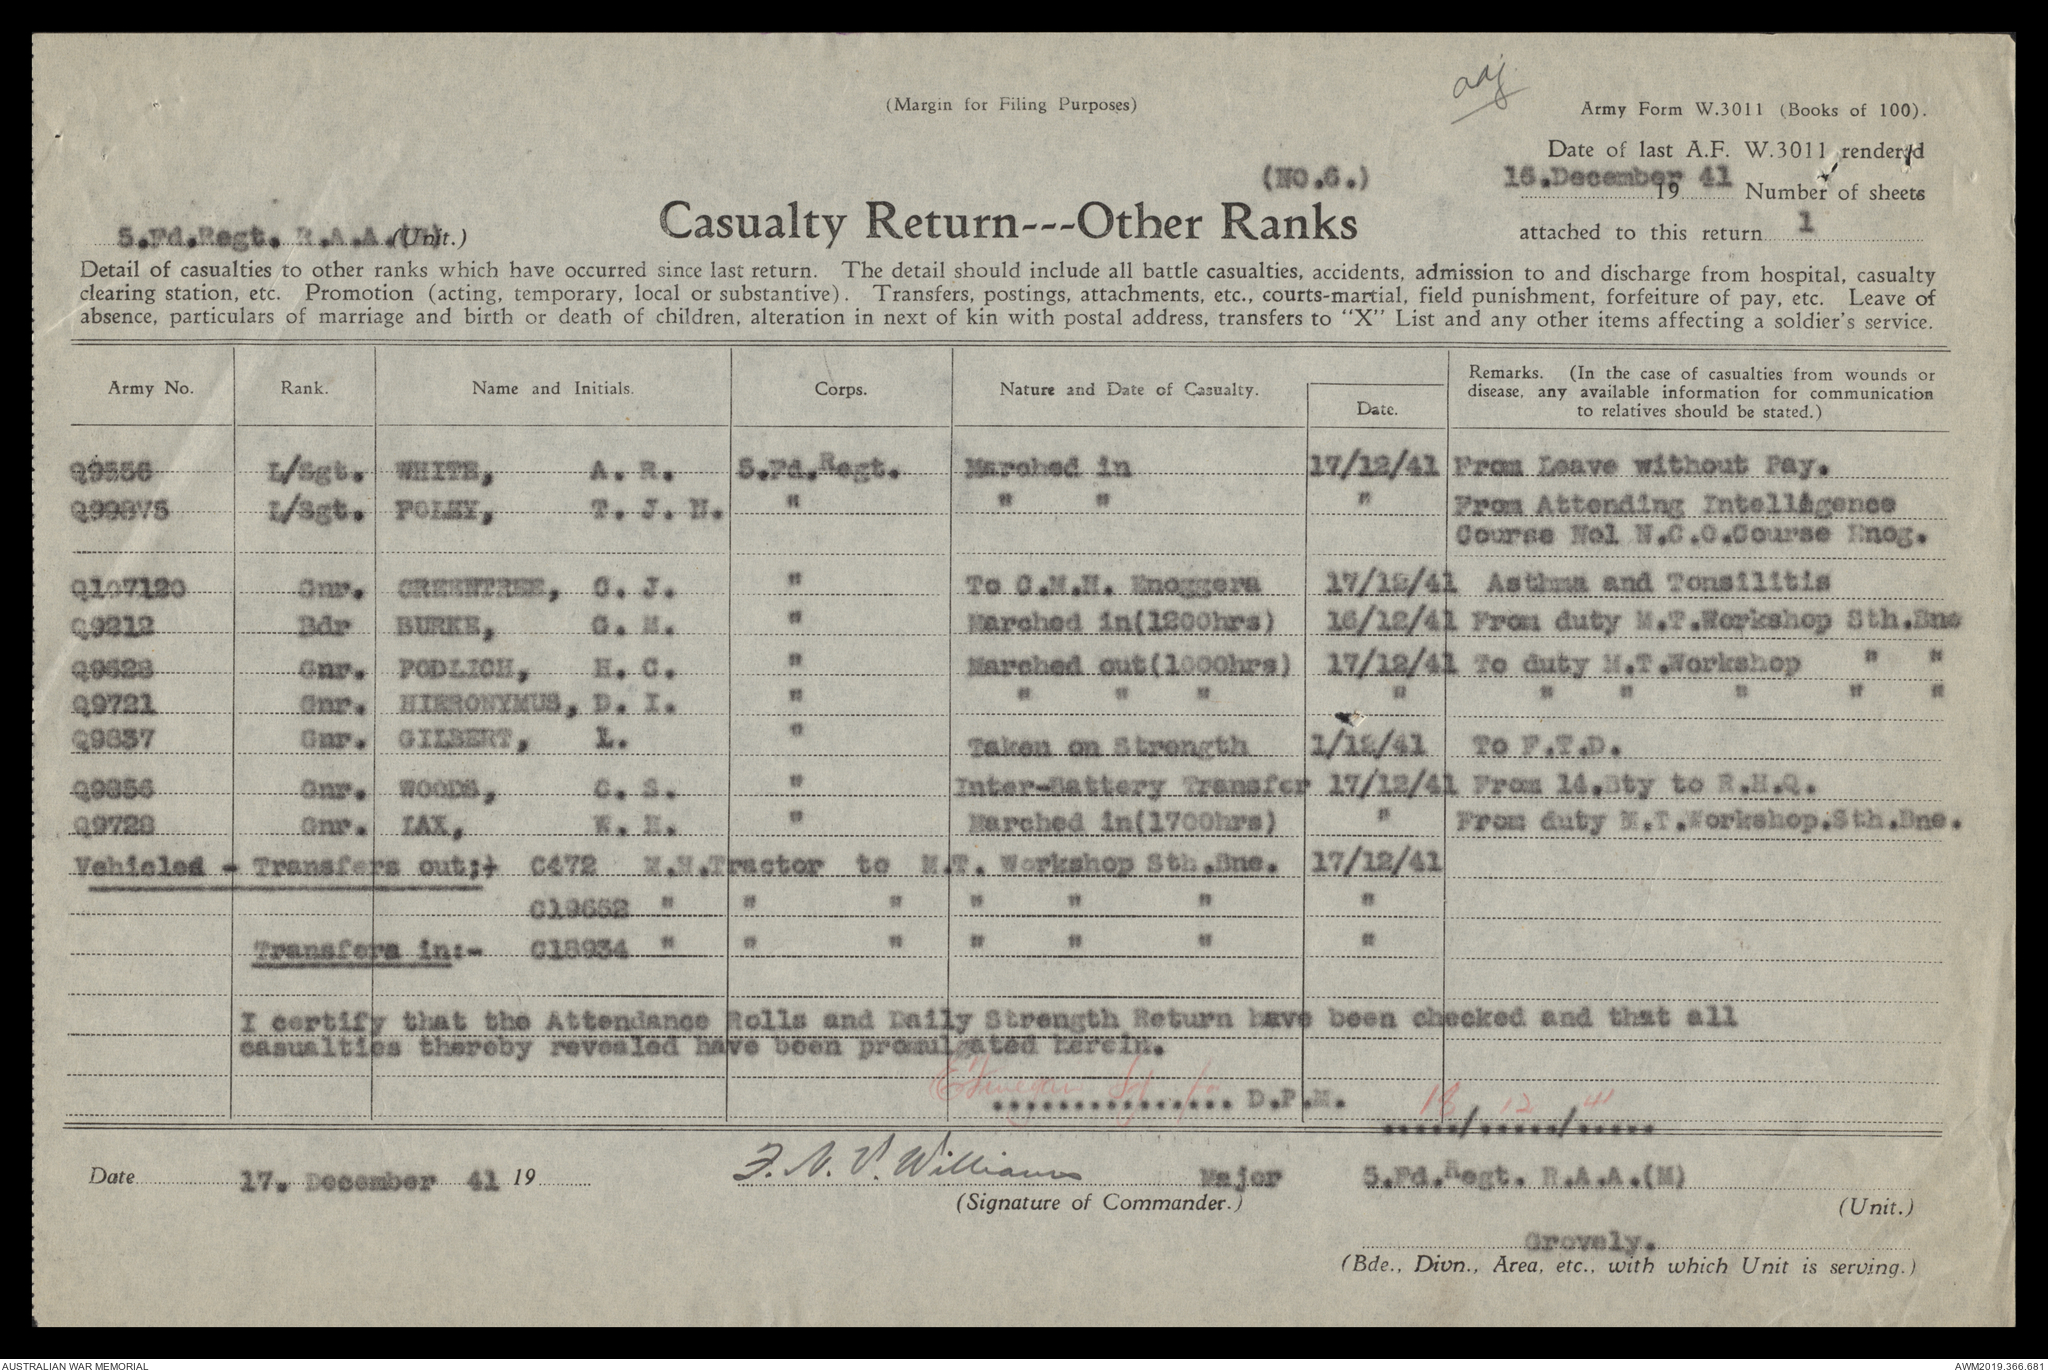 adj
(Margin for Filing Purposes)
Army Form W.3011 (Books of 100).
Date of last A.F. W.3011 rendered
(NO.6.)
16.December 41
19 Number of sheets
Casualty Return---Other Ranks
5.Fd.Regt. R.A.A.(M) (Unit.)
attached to this return 1
Detail of casualties to other ranks which have occurred since last return. The detail should include all battle casualties, accidents, admission to and discharge from hospital, casualty
clearing station, etc. Promotion (acting, temporary, local or substantive). Transfers, postings, attachments, etc., courts-martial, field punishment, forfeiture of pay, etc. Leave of
absence, particulars of marriage and birth or death of children, alteration in next of kin with postal address, transfers to "X" List and any other items affecting a soldier's service.
Army No. Rank. Name and Initials. Corps. Nature and Date of Casualty. Date. Remarks. (In the case of casualties from wounds or
disease, any available information for communication
to relatives should be stated.)
Q9556 L/Sgt. WHITE, A. R. 5.Fd.Regt. Marched in 17/12/41 From Leave without Pay.
Q99875 L/Sgt. FOLEY, T. J. H. " " " " From Attending Intelligence
Course No1 N.C.O.Course Enog.
Q107120 Gnr. GREENTREE, C. J. " To C.M.H. Enoggera 17/12/41 Asthma and Tonsilitis
Q9212 Bdr BURKE, G. M. " Marched in(1200hrs) 16/12/41 From duty M.T.Workshop Sth.Bne
Q9628 Gnr. PODLICH, H. C. " Marched out(1000hrs) 17/12/41 To duty M.T.Workshop " "
Q9721 Gnr. HIERONYMUS, D. I. " " " " " " " " " "
Q9837 Gnr. GILBERT, L. " Taken on Strength 1/12/41 To F.T.D.
Q9856 Gnr. WOODS, C. S. " Inter-Battery Transfer 17/12/41 From 14.Bty to R.H.Q.
Q9728 Gnr. LAX, W. H. " Marched in(1700hrs) " From duty M.T.Workshop.Sth.Bne.
Vehicles - Transfers out;+ C472 M.H.Tractor to M.T. Workshop Sth.Bne. 17/12/41
C19652 " " " " " " "
Transfers in:- C18934 " " " " " " "
I certify that the Attendance Rolls and Daily Strength Return have been checked and that all
casualties thereby revealed have been promulgated herein.
Sgt ............... D.P.M. 18/12/41
Date 17. December 41 19 F. N. V. Williams Major 5.Fd.Regt. R.A.A.(M)
(Signature of Commander.) (Unit.)
Grovely.
(Bde., Divn., Area, etc., with which Unit is serving.)
AUSTRALIAN WAR MEMORIAL AWM2019.366.681